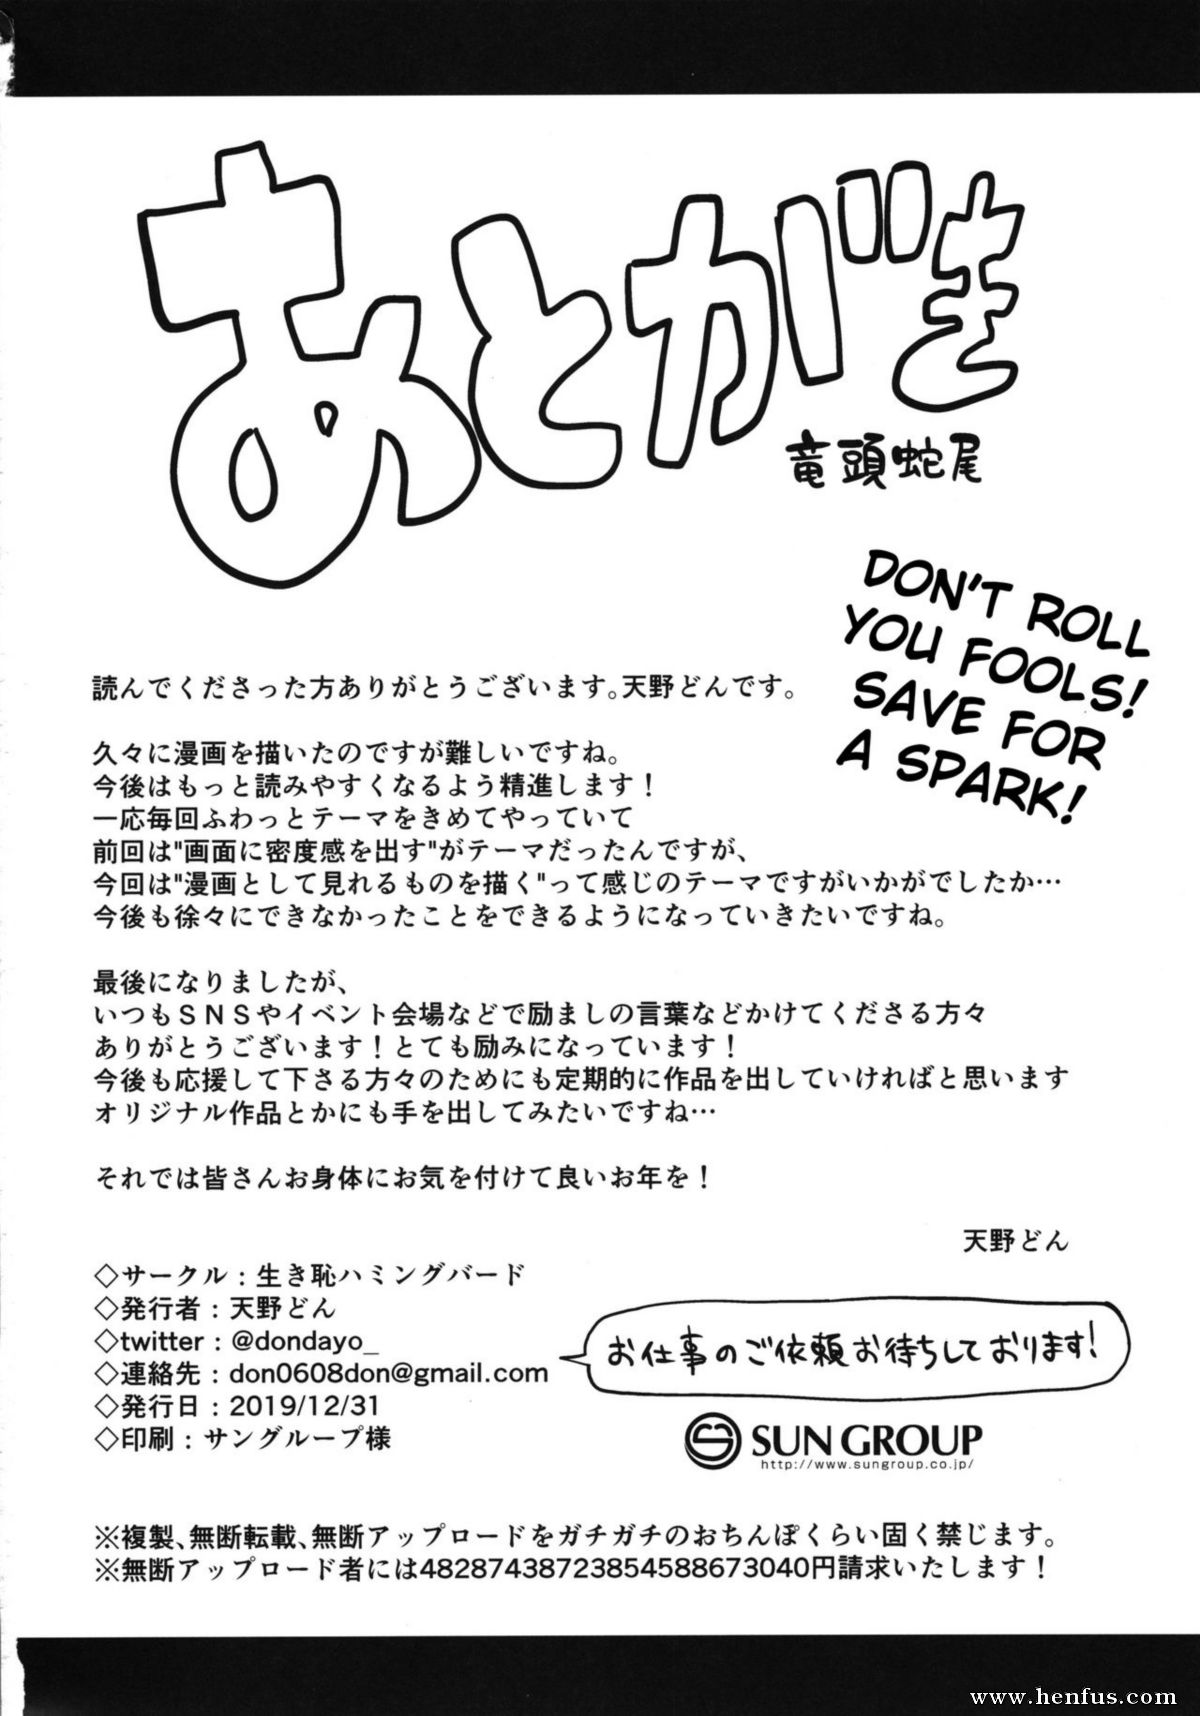 あとがき
竜頭蛇尾
DON'T ROLL
YOU FOOLS!
SAVE FOR
A SPARK!
読んでくださった方ありがとうございます。天野どんです。
久々に漫画を描いたのですが難しいですね。
今後はもっと読みやすくなるよう精進します！
一応毎回ふわっとテーマをきめてやっていて
前回は"画面に密度感を出す"がテーマだったんですが、
今回は"漫画として見れるものを描く"って感じのテーマですがいかがでしたか…
今後も徐々にできなかったことをできるようになっていきたいですね。
最後になりましたが、
いつもＳＮＳやイベント会場などで励ましの言葉などかけてくださる方々
ありがとうございます！とても励みになっています！
今後も応援して下さる方々のためにも定期的に作品を出していければと思います
オリジナル作品とかにも手を出してみたいですね…
それでは皆さんお身体にお気を付けて良いお年を！
天野どん
◇サークル：生き恥ハミングバード
◇発行者：天野どん
◇twitter：@dondayo_
◇連絡先：don0608don@gmail.com
◇発行日：2019/12/31
◇印刷：サングループ様
お仕事のご依頼お待ちしております！
SUN GROUP
http://www.sungroup.co.jp/
※複製、無断転載、無断アップロードをガチガチのおちんぽくらい固く禁じます。
※無断アップロード者には482874387238545886730​40円請求いたします！
www.henfus.com